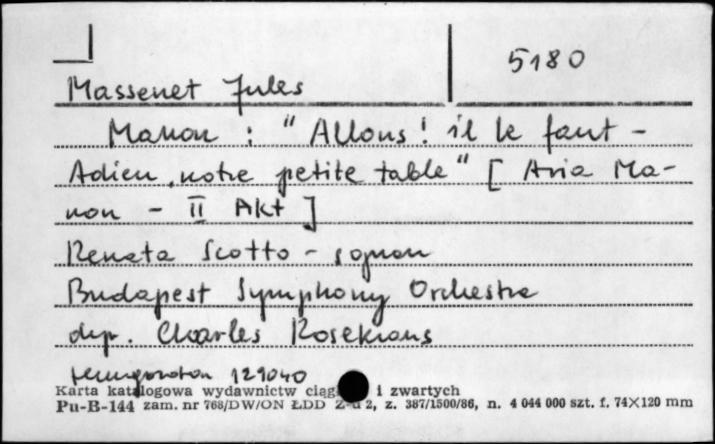 5180
Massenet Jules
Manon : "Allons! il le faut -
Adieu, notre petite table" [ Aria Ma-
non - II Akt ]
Renata Scotto - sopran
Budapest Symphony Orchestra
dyr. Charles Rosekrans
Hungaroton 121040
Karta katalogowa wydawnictw ciąg i zwartych
Pu-B-144 zam. nr 768/DW/ON ŁDD Z-d 2, z. 387/1500/86, n. 4 044 000 szt. f. 74×120 mm